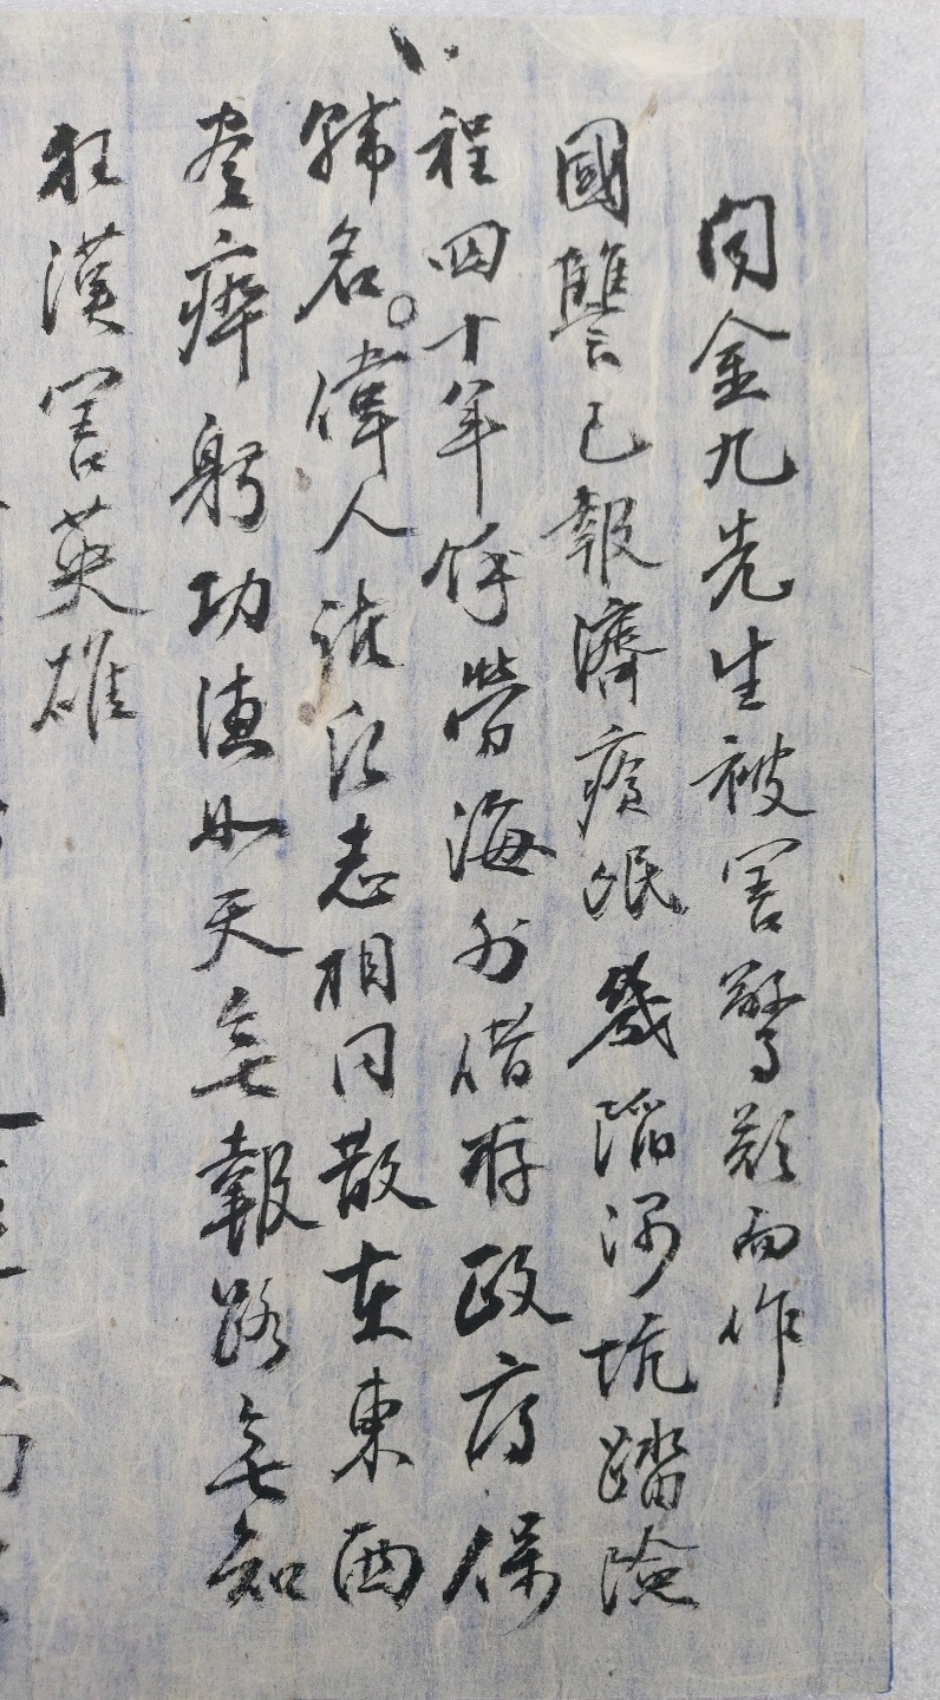 聞金九先生被害驚歎而作
國讐已報濟瘡氓幾陷深坑踏險
程四十年餘勞海外借存政府保
韓名。偉人誰沒志相同散在東西
盡瘁躬功德如天無報路無知
狂漢害英雄